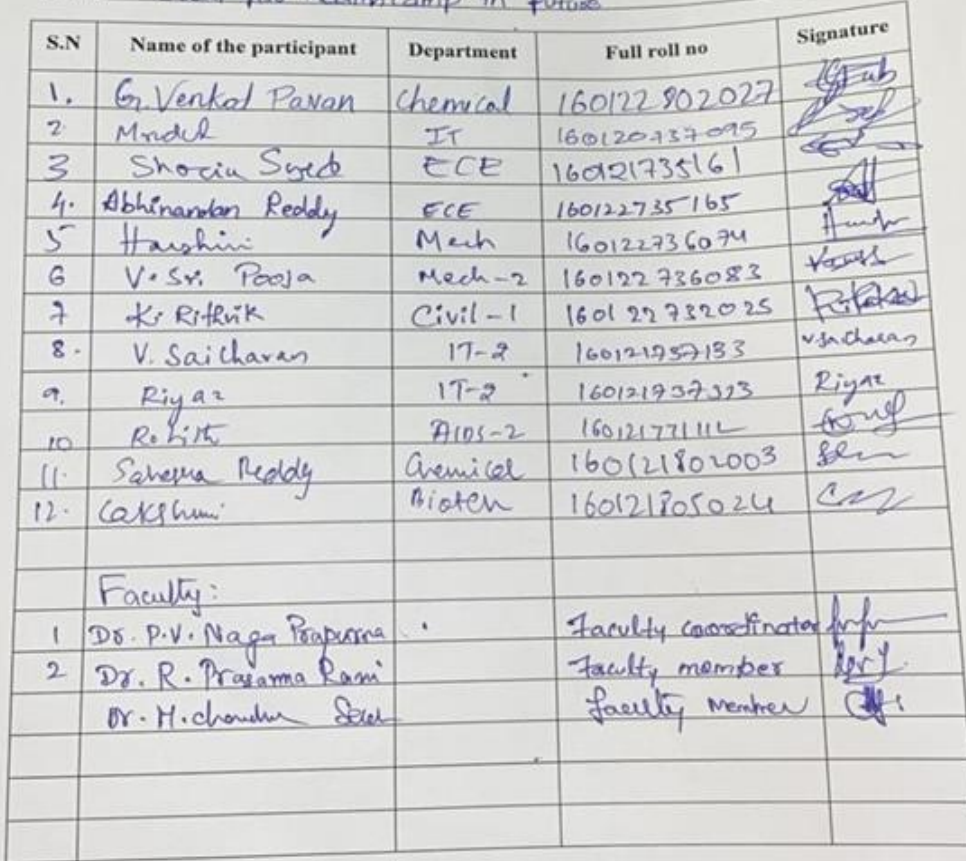 in future
S.N Name of the participant Department Full roll no Signature
1. G. Venkat Pavan Chemical 160122802027
2. IT 160120737095
3 Syed ECE 160121735161
4. Abhinandan Reddy ECE 160122735165
5 Harshini Mech 160122736074
6 V. Sri Pooja Mech-2 160122736083
7 K. Rithvik Civil-1 160122732025
8. V. Saicharan IT-2 160121737133 V. Saicharan
9. Riyaz IT-2 Riyaz
10 Rohith AIDS-2
11. Reddy Chemical 160121802003
12. Lakshmi Biotech 160121805024
Faculty:
1 Dr. P.V. Naga Prapurna Faculty coordinator
2 Dr. R. Prasanna Rani Faculty member
Dr. M. Faculty Member